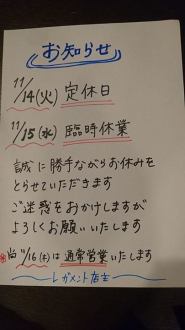 お知らせ
11/14(火) 定休日
11/15(水) 臨時休業
誠に勝手ながらお休みを
とらせていただきます
ご迷惑をおかけしますが
よろしくお願いいたします
※尚 11/16(木)は通常営業いたします
レガメント店主